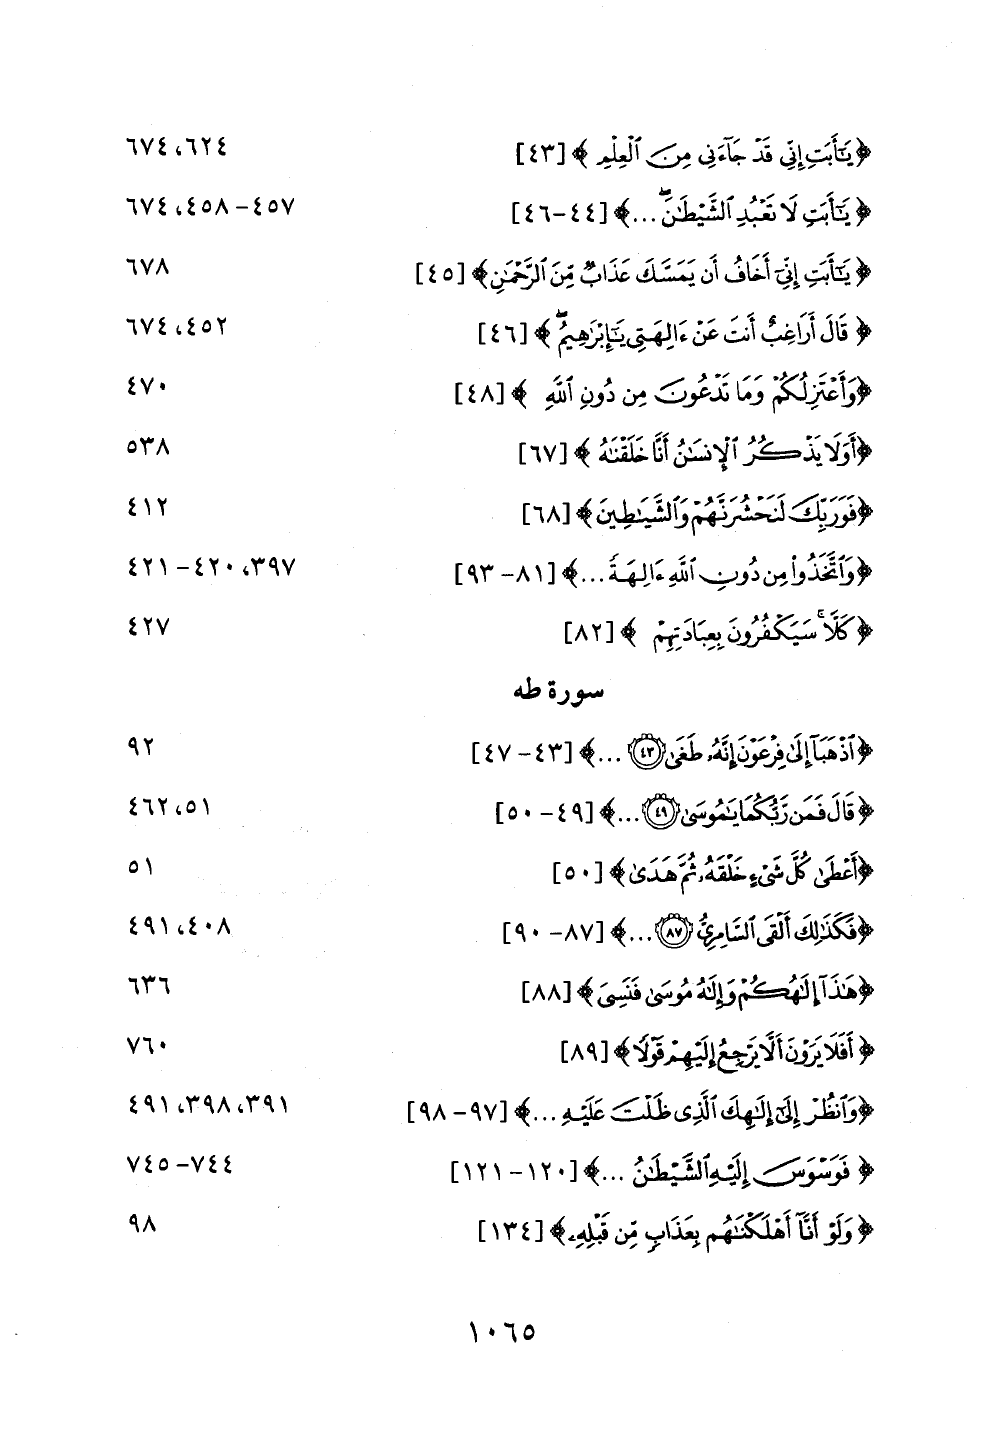 ﴿يَٰٓأَبَتِ إِنِّي قَدۡ جَآءَنِي مِنَ ٱلۡعِلۡمِ﴾ [٤٣] ٦٢٤، ٦٧٤
﴿يَٰٓأَبَتِ لَا تَعۡبُدِ ٱلشَّيۡطَٰنَۖ ...﴾ [٤٤-٤٦] ٤٥٧-٤٥٨، ٦٧٤
﴿يَٰٓأَبَتِ إِنِّيٓ أَخَافُ أَن يَمَسَّكَ عَذَابٞ مِّنَ ٱلرَّحۡمَٰنِ﴾ [٤٥] ٦٧٨
﴿قَالَ أَرَاغِبٌ أَنتَ عَنۡ ءَالِهَتِي يَٰٓإِبۡرَٰهِيمُۖ﴾ [٤٦] ٤٥٢، ٦٧٤
﴿وَأَعۡتَزِلُكُمۡ وَمَا تَدۡعُونَ مِن دُونِ ٱللَّهِ﴾ [٤٨] ٤٧٠
﴿أَوَلَا يَذۡكُرُ ٱلۡإِنسَٰنُ أَنَّا خَلَقۡنَٰهُ﴾ [٦٧] ٥٣٨
﴿فَوَرَبِّكَ لَنَحۡشُرَنَّهُمۡ وَٱلشَّيَٰطِينَ﴾ [٦٨] ٤١٢
﴿وَٱتَّخَذُواْ مِن دُونِ ٱللَّهِ ءَالِهَةٗ ...﴾ [٨١-٩٣] ٣٩٧، ٤٢٠-٤٢١
﴿كَلَّاۚ سَيَكۡفُرُونَ بِعِبَادَتِهِمۡ﴾ [٨٢] ٤٢٧
سورة طه
﴿ٱذۡهَبَآ إِلَىٰ فِرۡعَوۡنَ إِنَّهُۥ طَغَىٰ ٤٣ ...﴾ [٤٣-٤٧] ٩٢
﴿قَالَ فَمَن رَّبُّكُمَا يَٰمُوسَىٰ ٤٩ ...﴾ [٤٩-٥٠] ٥١، ٤٦٢
﴿أَعۡطَىٰ كُلَّ شَيۡءٍ خَلۡقَهُۥ ثُمَّ هَدَىٰ﴾ [٥٠] ٥١
﴿فَكَذَٰلِكَ أَلۡقَى ٱلسَّامِرِيُّ ٨٧ ...﴾ [٨٧-٩٠] ٤٠٨، ٤٩١
﴿هَٰذَآ إِلَٰهُكُمۡ وَإِلَٰهُ مُوسَىٰ فَنَسِيَ﴾ [٨٨] ٦٣٦
﴿أَفَلَا يَرَوۡنَ أَلَّا يَرۡجِعُ إِلَيۡهِمۡ قَوۡلٗا﴾ [٨٩] ٧٦٠
﴿وَٱنظُرۡ إِلَىٰٓ إِلَٰهِكَ ٱلَّذِي ظَلۡتَ عَلَيۡهِ ...﴾ [٩٧-٩٨] ٣٩١، ٣٩٨، ٤٩١
﴿فَوَسۡوَسَ إِلَيۡهِ ٱلشَّيۡطَٰنُ ...﴾ [١٢٠-١٢١] ٧٤٤-٧٤٥
﴿وَلَوۡ أَنَّآ أَهۡلَكۡنَٰهُم بِعَذَابٖ مِّن قَبۡلِهِۦ﴾ [١٣٤] ٩٨
١٠٦٥